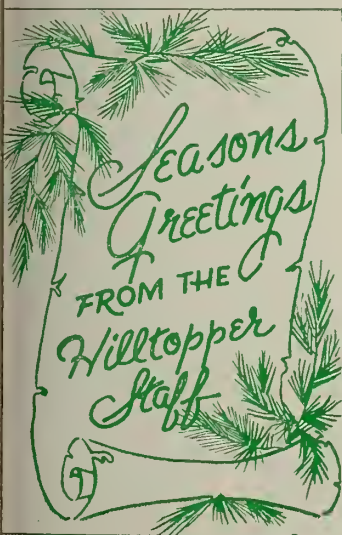 Seasons
Greetings
FROM THE
Hilltopper
Staff